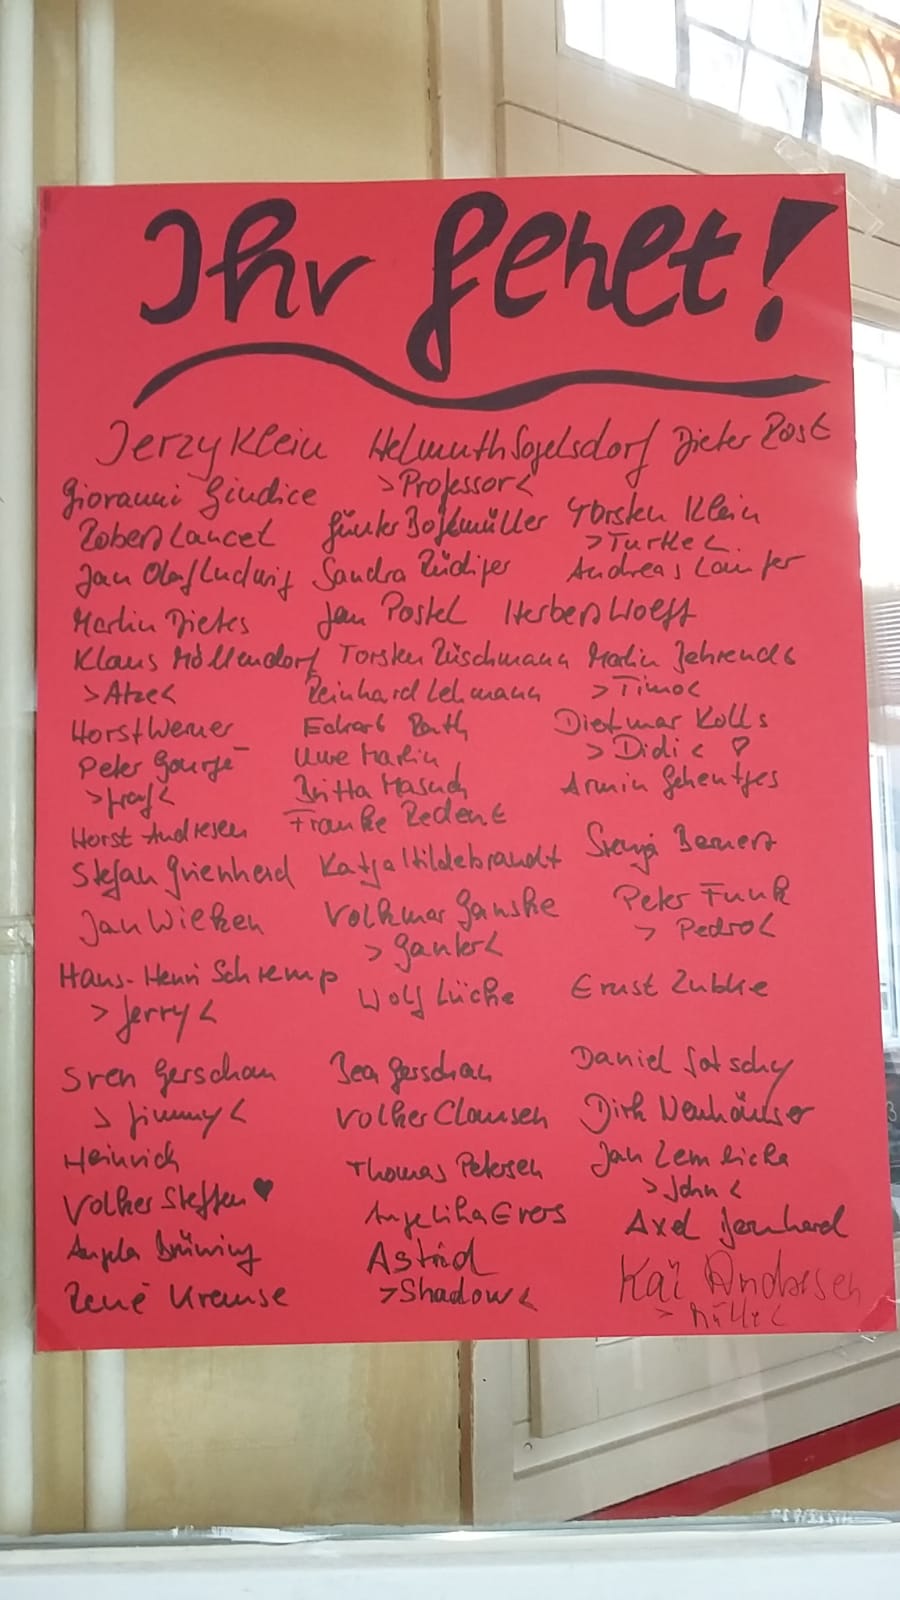 Ihr fehlt!
Jerzy Klein Helmuth Sogelsdorf Dieter Post
Giovanni Giudice >Professor<
Robert Lancet Günter Torsten Klein
>Turke<
Jan Olaf Ludwig Sandra Rüdiger Andreas
Martin Dietes Jan Postel Herbert Wolff
Klaus Möllendorf Torsten Rüschmann Martin Behrends
>Atze< Reinhard Lehmann >Timo<
Horst Werner Eckart Rath Dietmar Kolls
Peter Uwe Martin >Didi< ♡
Britta Masuch Armin Gehentges
Horst Andresen Frauke Redent
Stefan Grienherd Katja Hildebrandt Bernert
Jan Wieken Volkmar Ganske Peter Funk
>Ganter< >Pedro<
Hans-Henri Schremp Wolf Lüche Ernst Zubke
>Jerry<
Sven Gerschau Bea Gerschau Daniel
>Jimmy< Volker Clausen Dirk Neuhäuser
Heinrich Thomas Petersen Jan Zemlicka
>John<
Volker Steffen ♥ Angelika Eros Axel Bernhard
Angela Brüning Astrid Kai Andresen
René Krause >Shadow<